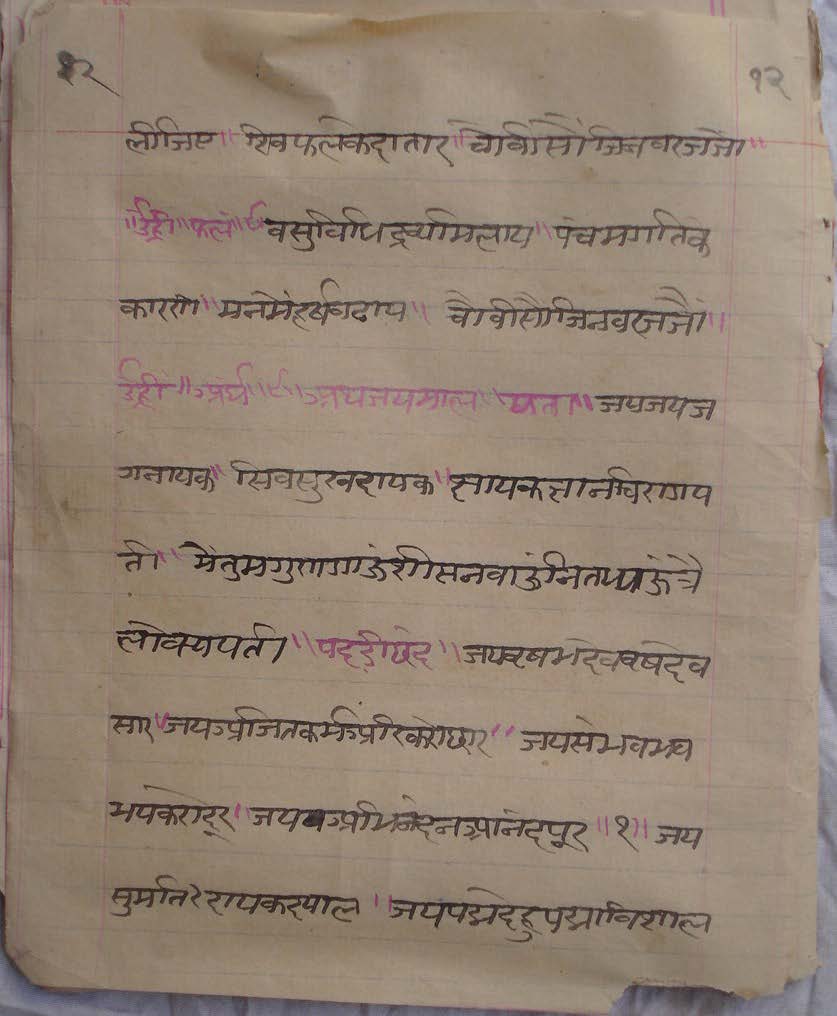 १२ १२
लीजिए ॥ शिवफलकेदातार ॥ चौवीसौंजिनवरजजौं ॥
॥ उँह्री ॥ फलं ॥ ८ ॥ वसुविधिद्रव्यमिलाय ॥ पंचमगतिके
कारणै ॥ मनमेंहर्षवढाय ॥ चौवीसौंजिनवरजजौं ॥
उँह्रीं ॥ अर्घं ॥ ९ ॥ अथजयमाल ॥ घता ॥ जयजयज
गनायक ॥ सिवसुखदायक ॥ ज्ञायकज्ञानविरागप
ती ॥ मैंतुमगुणगाऊंशीसनवाऊंनितध्याऊंत्रै
लोक्यपती ॥ पद्दडीछंद ॥ जयरषभदेवरषदेव
सार ॥ जयअजितकर्मअरिकरोछार ॥ जयसंभवभव
भयकरोदूर ॥ जयअभिनंदनआनंदपूर ॥ १ ॥ जय
सुमति रायकरयाल ॥ जयपद्मदेहुपद्माविशाल